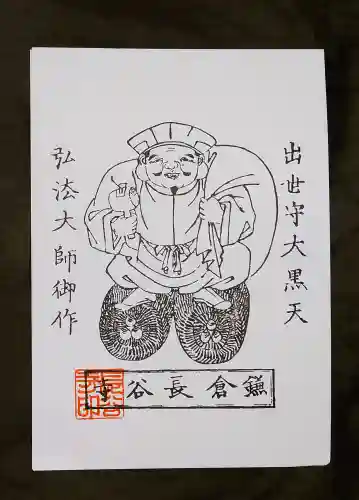 出世守大黒天
弘法大師御作
鎌倉長谷寺